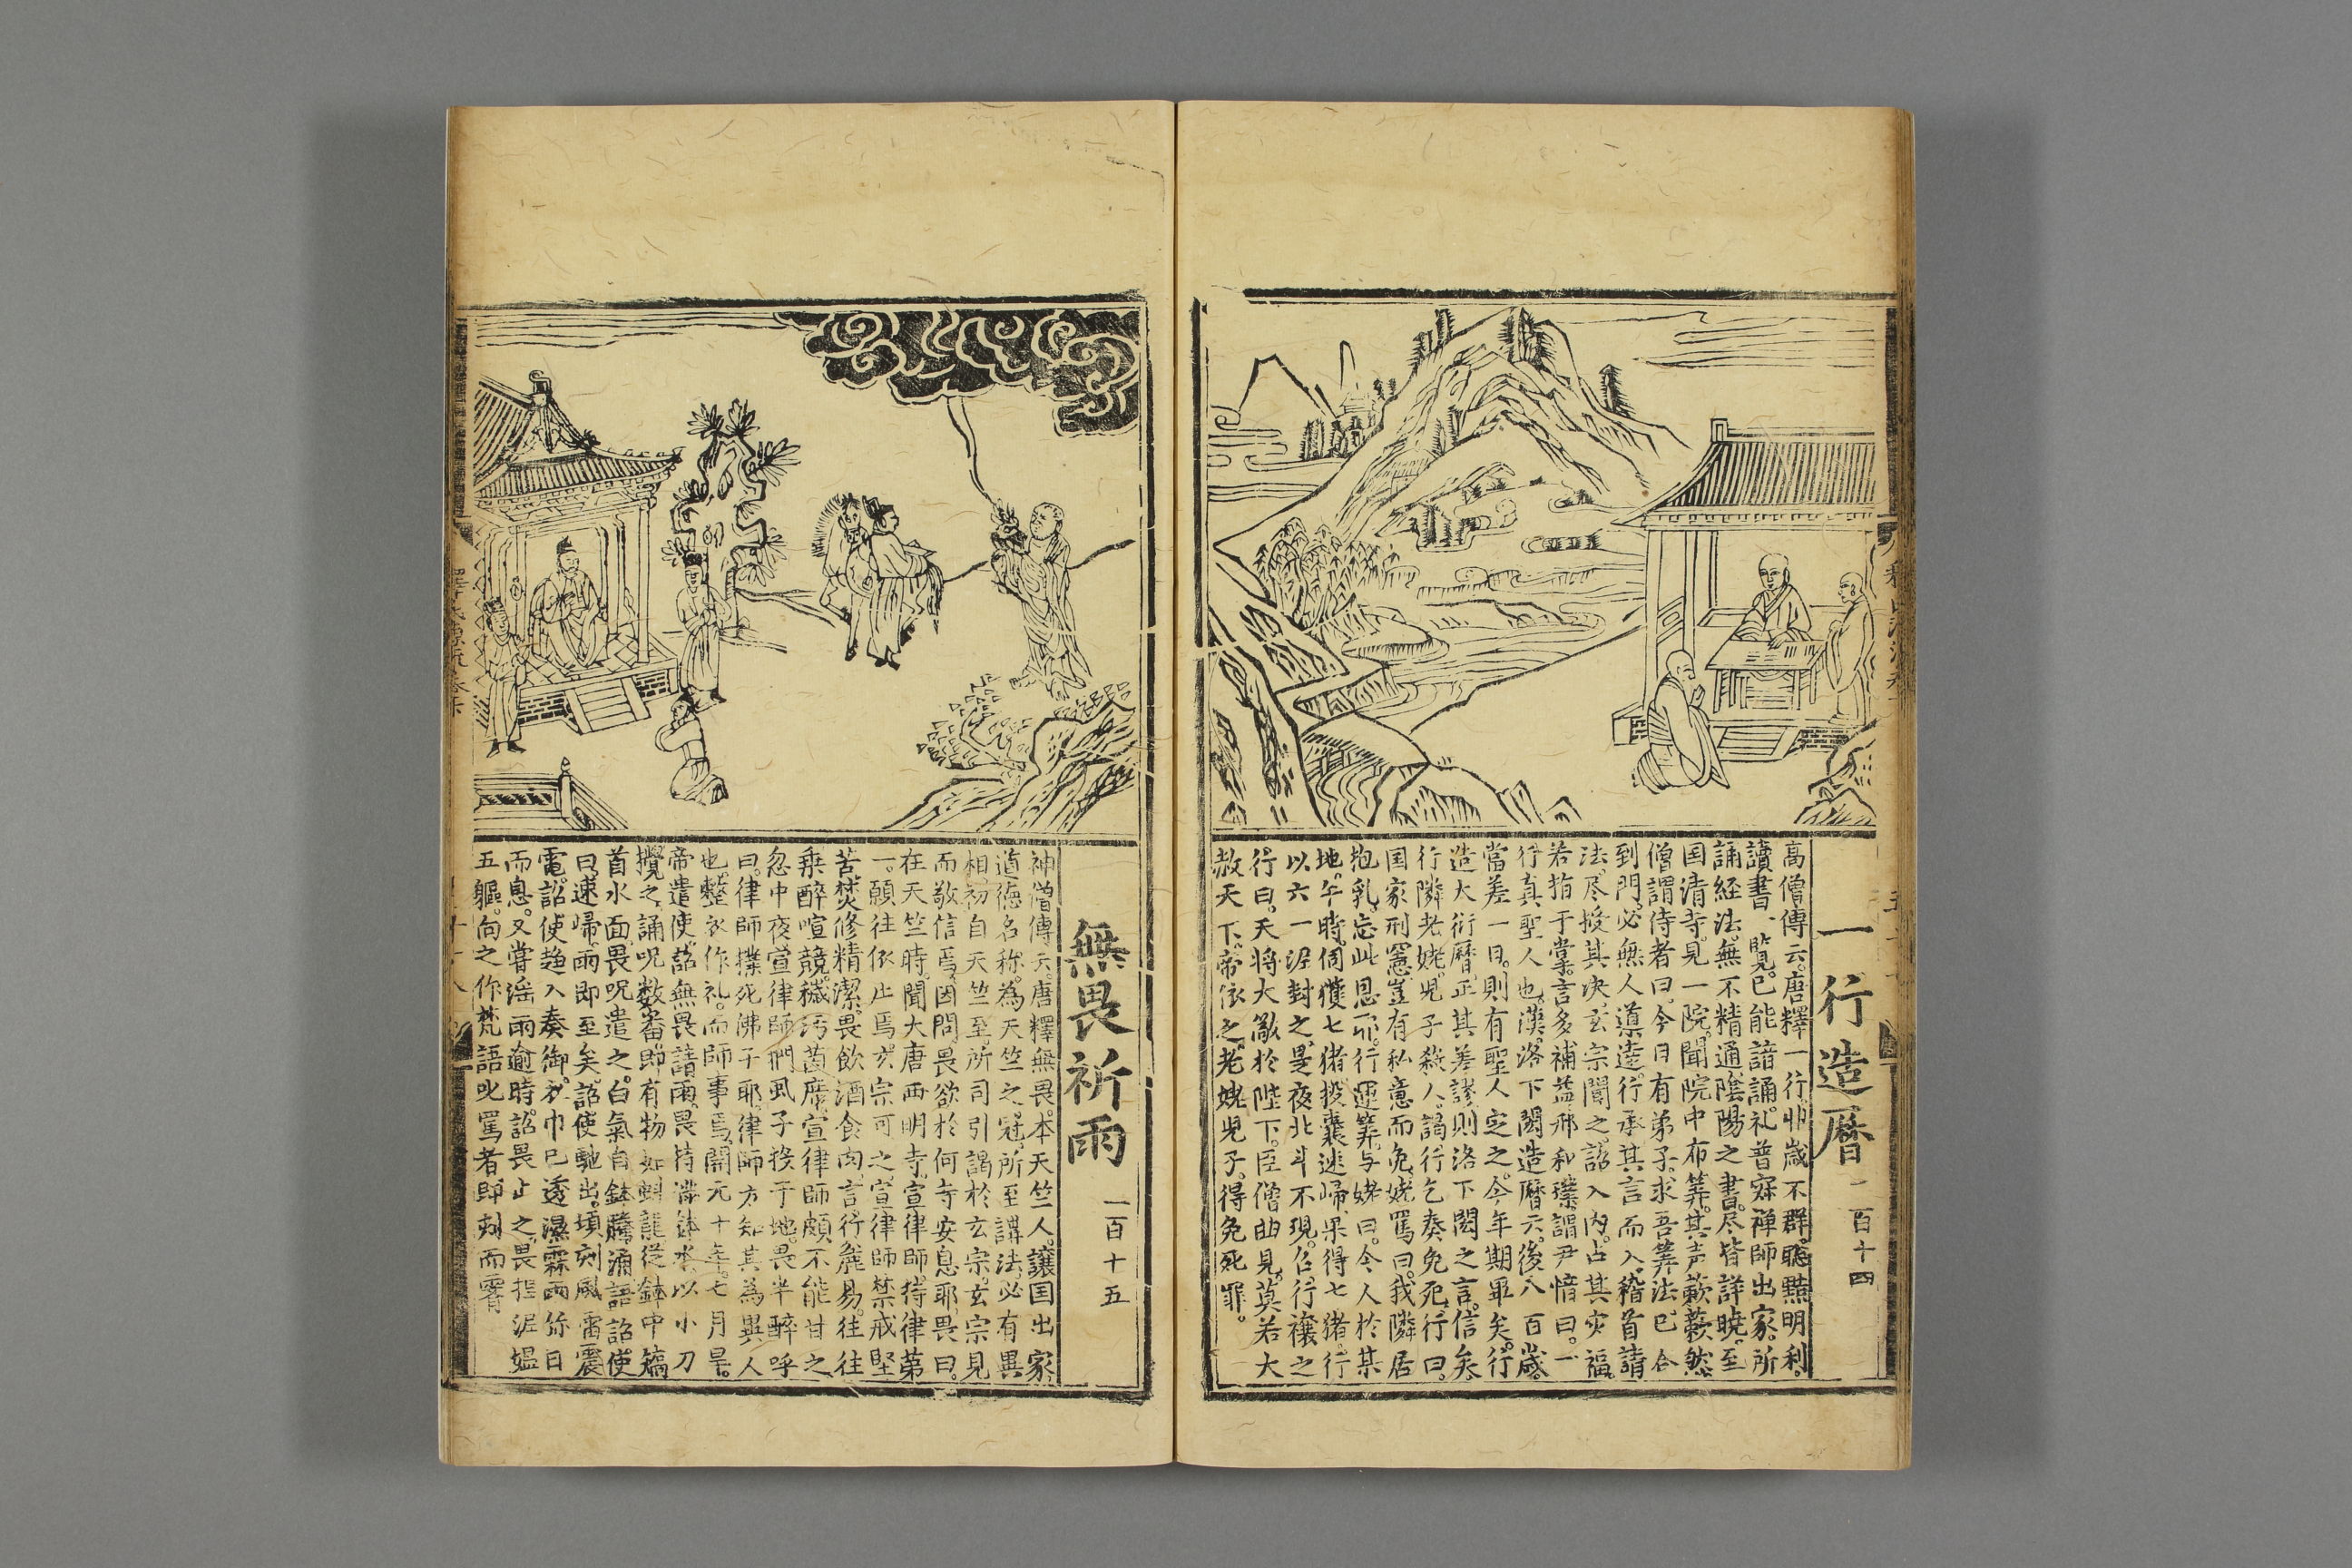 一行造曆 一百十四
高僧傳云。唐釋一行。丱歲不群。聰黠明利。
讀書一覽。已能諳誦。礼普寂禅師出家。所
誦経法。無不精通。陰陽之書。尽皆詳曉。至
国清寺。見一院。聞院中布筭。其声蔌蔌然。
僧謂侍者曰。今日有弟子。求吾筭法。已合
到門。必無人導達。行承其言而入。稽首請
法。尽授其决。玄宗聞之。詔入内。占其灾福。
若指于掌。言多補益。邢和璞謂尹愔曰。一
行真聖人也。漢洛下閎造曆云。後八百歲。
當差一日。則有聖人定之。今年期畢矣。行
造大衍曆。正其差謬。則洛下閎之言信矣。
行隣老姥。兒子殺人。謁行乞奏免死。行曰。
国家刑憲。豈有私意而免。姥罵曰。我隣居
抱乳。忘此恩耶。行運筭。与姥曰。今人於某
地。午時。伺獲七猪。投囊迷歸。果得七猪。行
以六一泥封之。是夜北斗不現。召行。行禳之
行曰。天将大敵於陛下。臣僧曲見。莫若大
赦天下。帝依之。老姥兒子。得免死罪。
無畏祈雨 一百十五
神僧傳云。唐釋無畏。本天竺人。讓国出家。
道德名称。為天竺之冠。所至講法。必有異
相。初自天竺至。所司引謁於玄宗。玄宗見
而敬信焉。因問畏欲於何寺安息耶。畏曰。
在天竺時。聞大唐西明寺。宣律師。持律第
一。願往依止焉。玄宗可之。宣律師禁戒堅
苦。焚修精潔。畏飲酒食肉。言行麁易。往往
乗醉喧競。穢污茵席。宣律師頗不能甘之。
忽中夜宣律師捫虱子投于地。畏半醉呼
曰。律師撲死佛子耶。律師方知其為異人
也。整衣作礼。而師事焉。開元十年。七月旱。
帝遣使。詔無畏請雨。畏持滿鉢水。以小刀
攪之。誦呪数番。即有物如蚪龍。從鉢中矯
首水面。畏呪遣之。白氣自鉢騰涌。語詔使
曰。速歸。雨即至矣。詔使馳出。頃刻風雷震
電。詔使趨入奏御。衣巾已透濕。霖雨弥日
而息。又嘗滛雨逾時。詔畏止之。畏捏泥媼
五軀。向之作梵語叱罵者。即刻而霽。